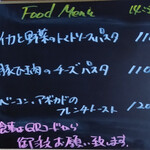 Food Menu
イカと野菜のトマトソースパスタ 110
豚ひき肉のチーズパスタ 110
ベーコン、アボカドの
フレンチトースト 120
QRコードから
お願い致します。